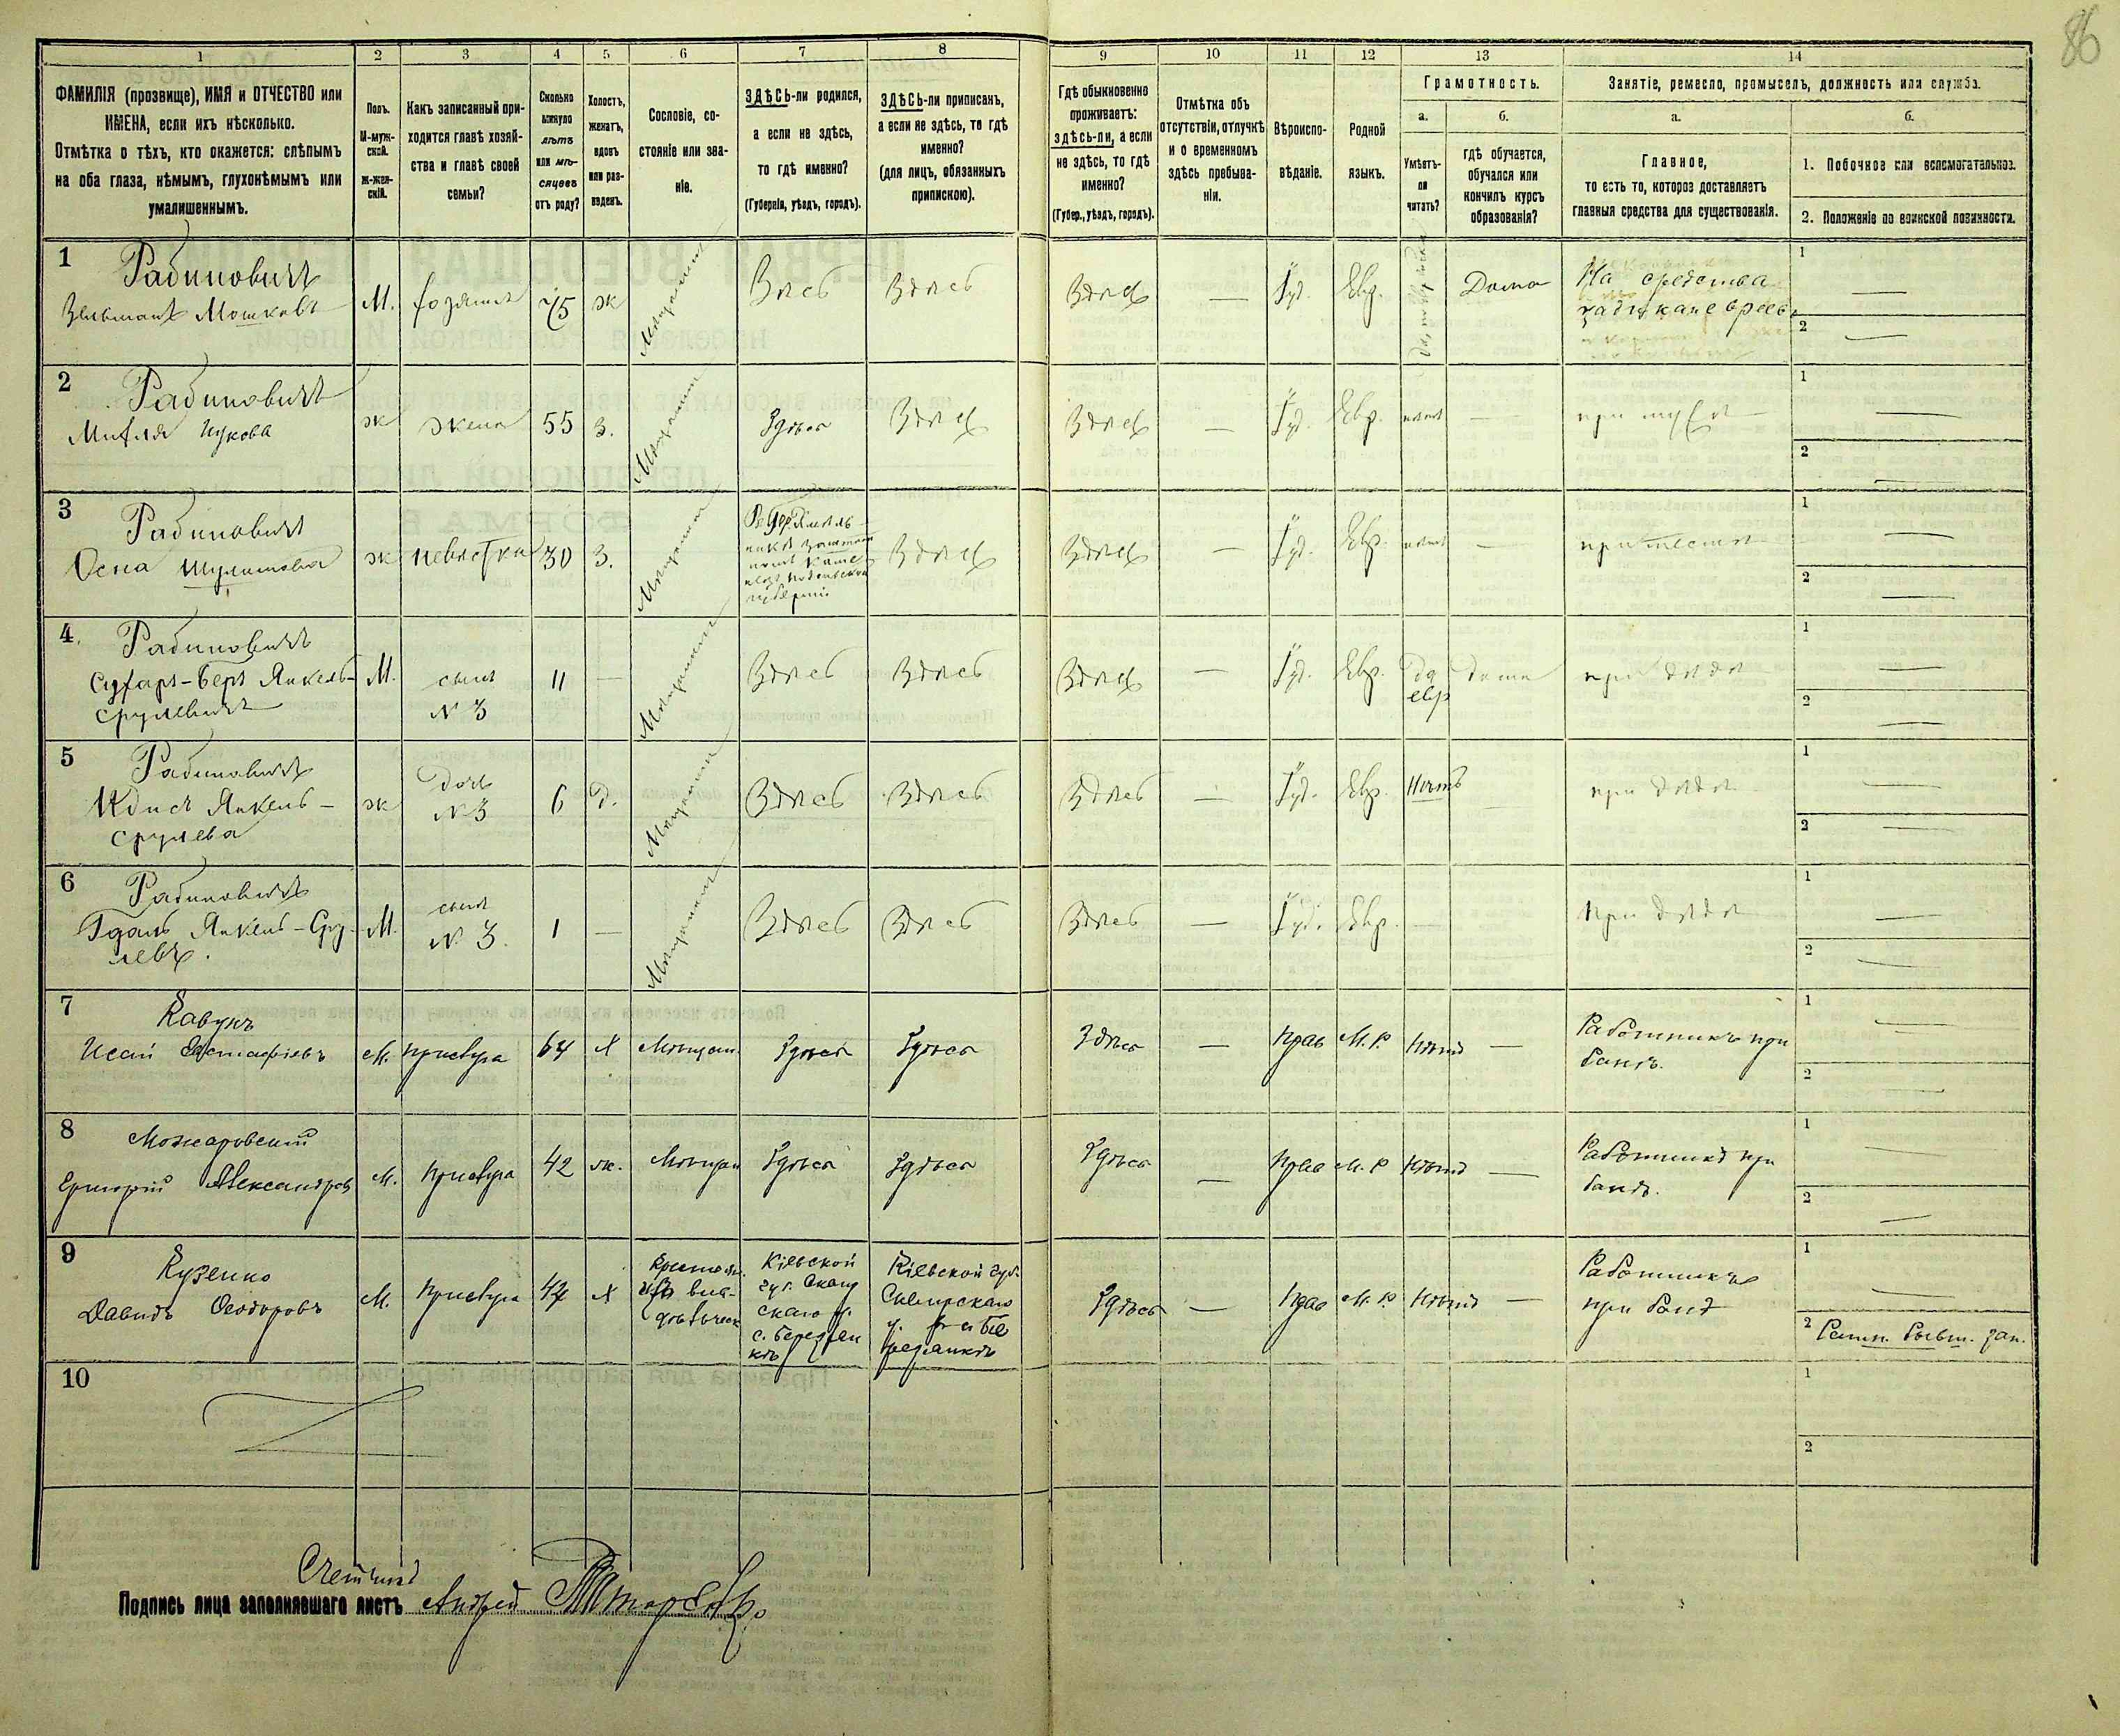 86
1
2
3
4
5
6
7
8
9
10
11
12
13
14
ФАМИЛІЯ (прозвище), ИМЯ и ОТЧЕСТВО или
ИМЕНА, если ихъ нѣсколько.
Отмѣтка о тѣхъ, кто окажется: слѣпымъ
на оба глаза, нѣмымъ, глухонѣмымъ или
умалишеннымъ.
Полъ.
М-муж-
ской.
Ж-жен-
скій.
Какъ записанный при-
ходится главѣ хозяй-
ства и главѣ своей
семьи?
Сколько
минуло
лѣтъ
или мѣ-
сяцевъ
отъ роду?
Холостъ,
женатъ,
вдовъ
или раз-
веденъ.
Сословіе, со-
стояніе или зва-
ніе.
ЗДѢСЬ-ли родился,
а если не здѣсь,
то гдѣ именно?
(Губернія, уѣздъ, городъ).
ЗДѢСЬ-ли приписанъ,
а если не здѣсь, то гдѣ
именно?
(для лицъ, обязанныхъ
припискою).
Гдѣ обыкновенно
проживаетъ:
здѣсь-ли, а если
не здѣсь, то гдѣ
именно?
(Губер., уѣздъ, городъ).
Отмѣтка объ
отсутствіи, отлучкѣ
и о временномъ
здѣсь пребыва-
ніи.
Вѣроиспо-
вѣданіе.
Родной
языкъ.
Грамотность.
а.
Умѣетъ-
ли
читать?
б.
гдѣ обучается,
обучался или
кончилъ курсъ
образованія?
Занятіе, ремесло, промыселъ, должность или служба.
а.
Главное,
то есть то, которое доставляетъ
главныя средства для существованія.
б.
1. Побочное или вспомогательное.
2. Положеніе по воинской повинности.
1
Рабиновичъ
Зельманъ Мошковъ
М. хозяинъ 75 ж Мещанинъ Здѣсь Здѣсь
Здѣсь — Іуд. Евр. Дома На средства
1 —
2 —
2
Рабиновичъ
ж жена 55 З. Мещанин Здѣсь Здѣсь
Здѣсь — Іуд. Евр. нѣтъ — при мужѣ
1 —
2 —
3
Рабиновичъ
Осна
ж невѣстка 30 З. Мещанин
губерніи
Здѣсь
Здѣсь — Іуд. Евр. нѣтъ —
1 —
2 —
4
Рабиновичъ
Беръ Янкель-
Срулевичъ
М. сынъ
№ 3
11 — Мещанин Здѣсь Здѣсь
Здѣсь — Іуд. Евр. да
евр
дома при дѣдѣ
1 —
2 —
5
Рабиновичъ
Янкель-
Срулева
ж дочь
№ 3
6 д. Мещанин Здѣсь Здѣсь
Здѣсь — Іуд. Евр. Нѣтъ при дѣдѣ
1 —
2 —
6
Рабиновичъ
Янкель-Сру-
левъ.
М. сынъ
№ 3.
1 — Мещанин Здѣсь Здѣсь
Здѣсь — Іуд. Евр. — При дѣдѣ
1 —
2 —
7
Кавунъ
Исай Евстафіевъ
М. прислуга 64 Х Мѣщан. Здѣсь Здѣсь
Здѣсь — Прав М.Р. Нѣтъ — Работникъ при
банѣ.
1 —
2 —
8
Можаровскій
Григорій Александров
М. прислуга 42 ж. Мѣщан Здѣсь Здѣсь
Здѣсь — Прав М.Р Нѣтъ — Работникъ при
банѣ.
1 —
2 —
9
Кузенко
Давидъ Ѳеодоровъ
М. Прислуга 47 Х Крестьян.
изъ вла-
дѣльческ
Кіевской
губ. Сквир
скаго у.
с. Березян
кѣ
Кіевской губ.
Сквирскаго
у.
Здѣсь — Прав М.Р. Нѣтъ Работникъ
при банѣ
1 —
2 Ратн. бывш. зап.
10
1
2
Счетчикъ
Подпись лица заполнявшаго листъ Андрей